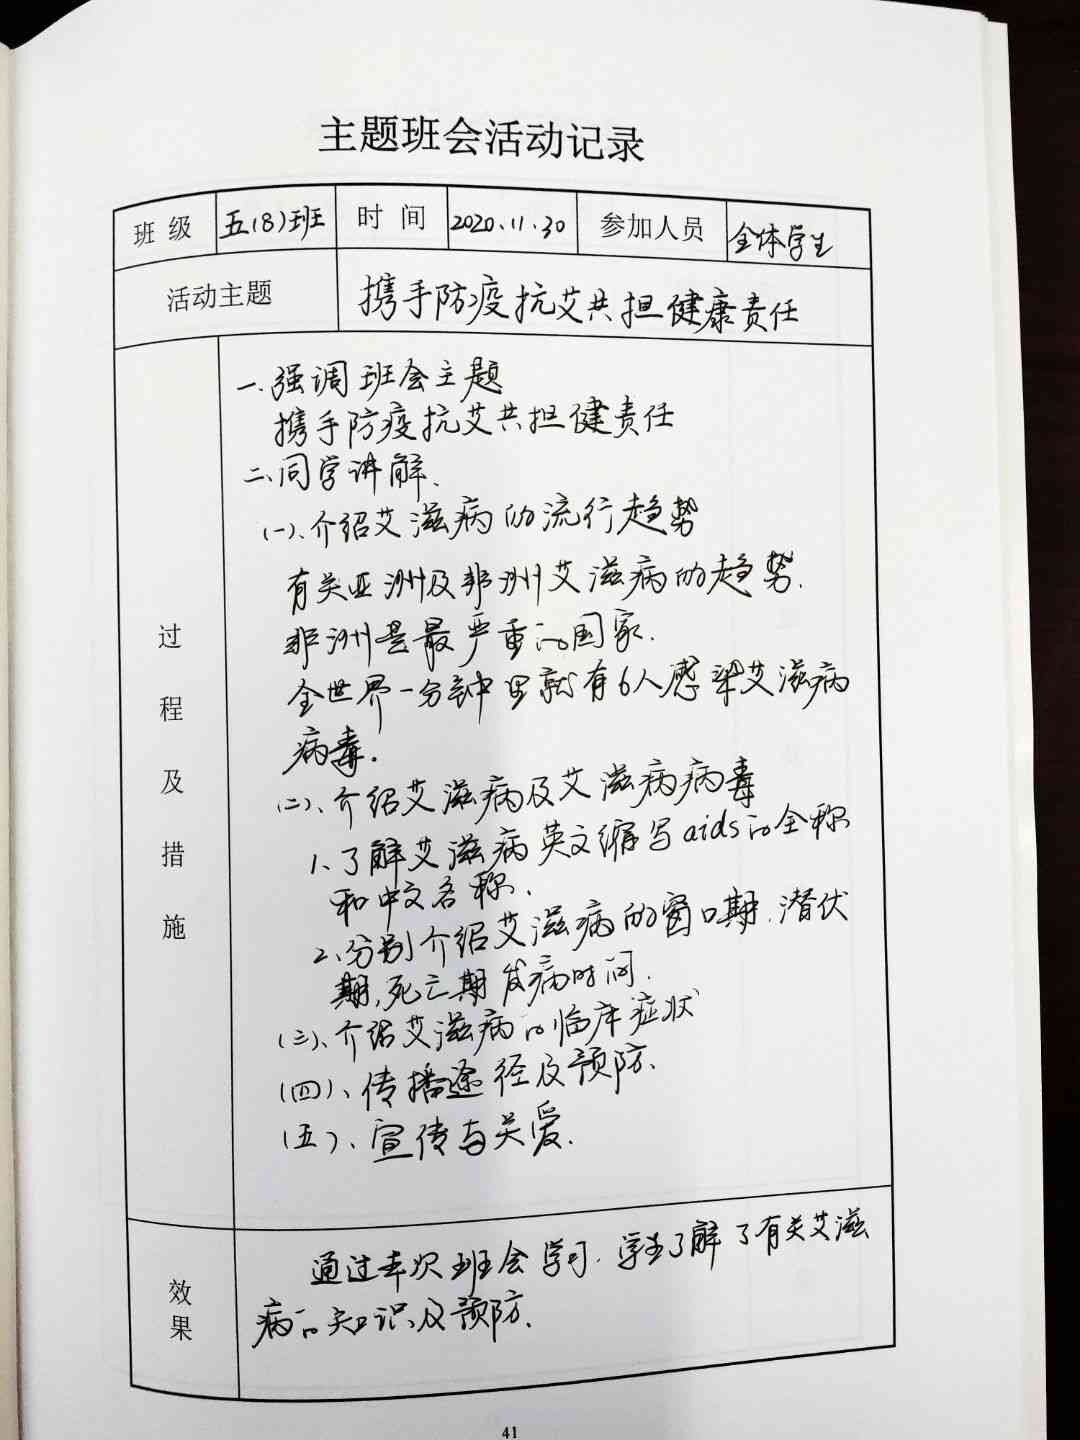 主题班会活动记录
班级 五(8)班 时间 2020.11.30 参加人员 全体学生
活动主题 携手防疫抗艾共担健康责任
过程及措施
一、强调班会主题
携手防疫抗艾共担健责任
二、同学讲解.
(一)、介绍艾滋病的流行趋势
有关亚洲及非洲艾滋病的趋势.
非洲是最严重的国家.
全世界一分钟里就有6人感染艾滋病
病毒.
(二)、介绍艾滋病及艾滋病病毒
1、了解艾滋病英文缩写aids的全称
和中文名称.
2、分别介绍艾滋病的窗口期.潜伏
期,死亡期发病时间.
(三)、介绍艾滋病的临床症状
(四)、传播途径及预防.
(五)、宣传与关爱.
效果
通过本次班会学习.学生了解了有关艾滋
病的知识及预防.
41